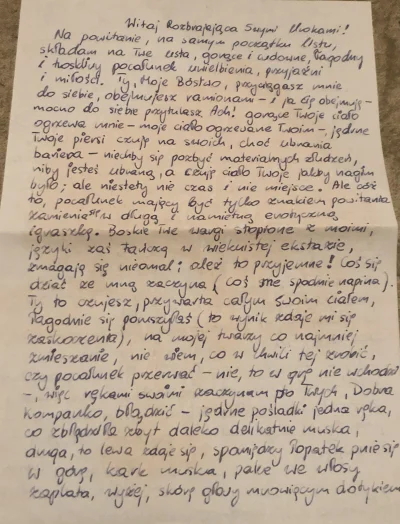 Witaj Rozbrajająca Swymi Urokami!
Na powitanie, na samym początku listu,
składam na Twe usta, gorące i cudowne, łagodny
i tkliwy pocałunek uwielbienia, przyjaźni
i miłości. Ty, Moje Bóstwo, przyciągasz mnie
do siebie, obejmujesz ramionami – i ja Cię obejmuję –
mocno do siebie przytulasz. Ach! gorące Twoje ciało
ogrzewa mnie – moje ciało ogrzewane Twoim –, jędrne
Twoje piersi czuję na swoich, choć ubrania
bariera – niechby się pozbyć materialnych złudzeń,
niby jesteś ubraną, a czuję ciało Twoje jakby nagim
było; ale niestety nie czas i nie miejsce. Ale cóż
to, pocałunek mający być tylko znakiem powitania
zamienia się w długą i namiętną erotyczną
igraszkę. Boskie Twe wargi stopione z moimi,
języki zaś tańczą w wiekuistej ekstazie,
zmagają się nieomal; ależ to przyjemne! Coś się
dziać ze mną zaczyna (coś me spodnie napina).
Ty to czujesz, przywarta całym swoim ciałem,
łagodnie się poruszyłaś (to wynik zdaje mi się
zaskoczenia), na mojej twarzy co najmniej
zmieszanie, nie wiem, co w chwili tej zrobić,
czy pocałunek przerwać – nie, to w grę nie wchodzi
–, więc rękami swoimi zaczynam po Twych, Dobra
Kompanko, błądzić – jędrne pośladki jedna ręka,
co zbłądziła zbyt daleko delikatnie muska,
druga, to lewa zdaje się, spomiędzy łopatek pnie się
w górę, kark muska, palce we włosy
zaplata, wyżej, skórę głowy mrowiącym dotykiem